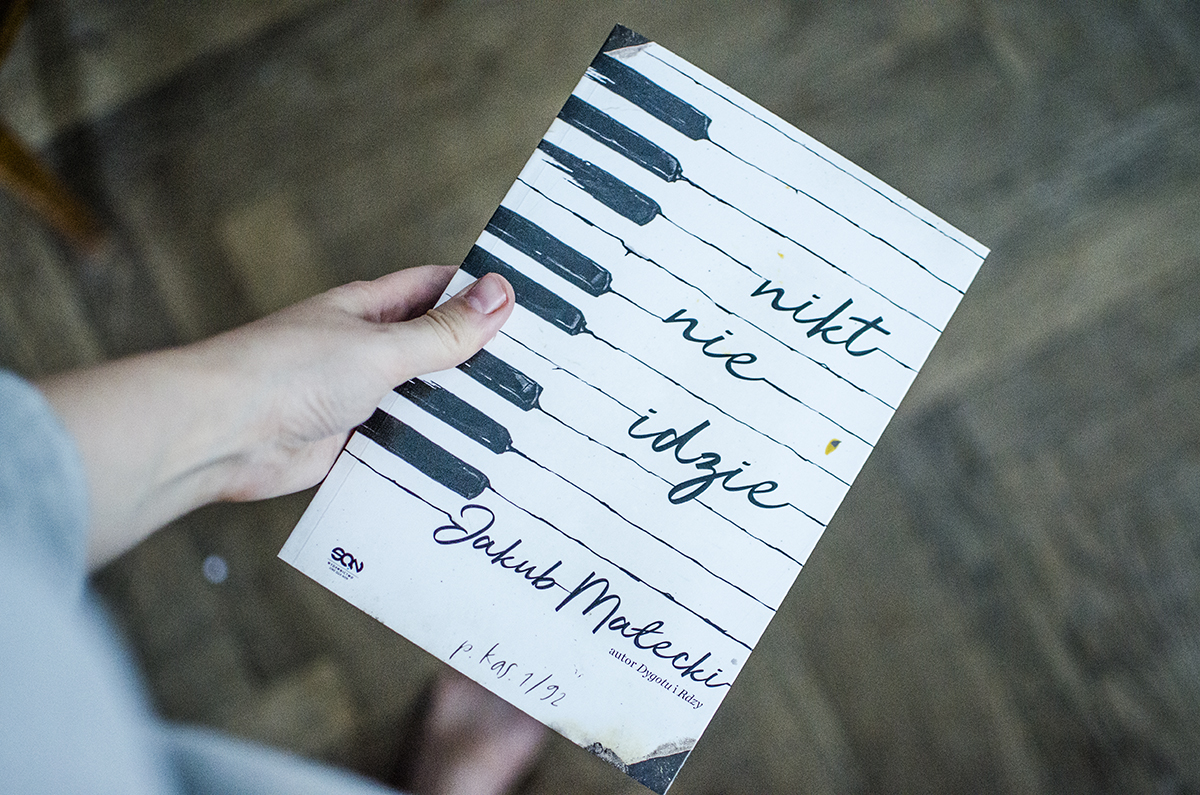 nikt
nie
idzie
Jakub Małecki
autor Dygotu i Rdzy
SQN
p. kas. 1/92